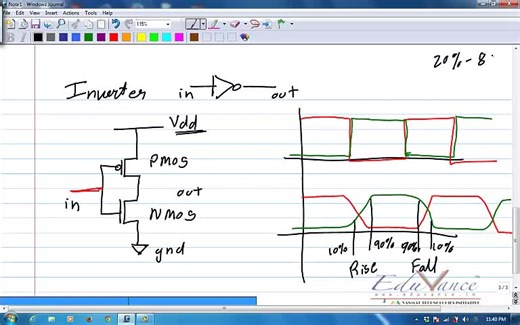 Note1 - Windows Journal
File Edit View Insert Actions Tools Help
115%
20% - 8
Inverter in out
Vdd
PMOS
out
in
NMOS
gnd
10% 90% 90% 10%
Rise Fall
EduVance
www.eduvance.in
3/3
11:40 PM